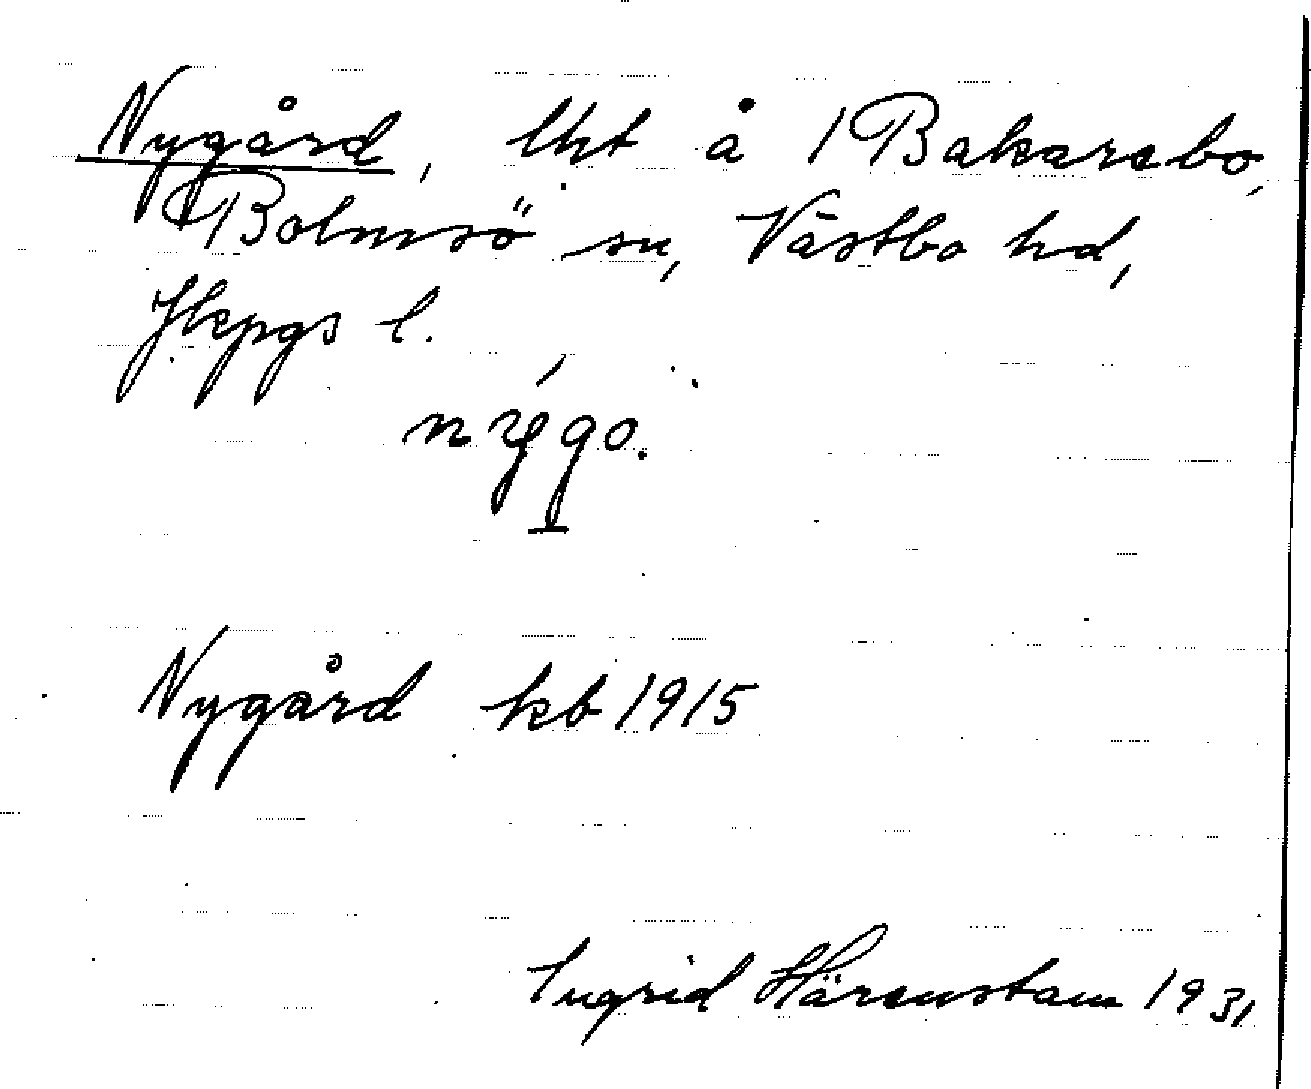 Nygård, lht å 1 Bakarebo,
Bolmsö sn, Västbo hd,
Jkpgs l.
nýgo.
Nygård kb 1915
Ingrid Härenstam 1931